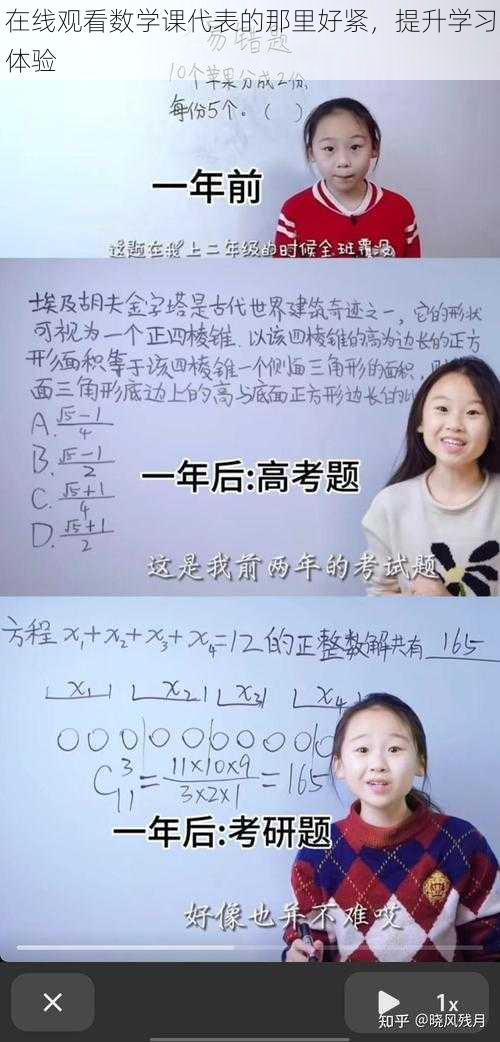 在线观看数学课代表的那里好紧，提升学习
体验
易错题
10个苹果分成2份，
每份5个。（ ）
一年前
这题在我上二年级的时候全班覆没
埃及胡夫金字塔是古代世界建筑奇迹之一，它的形状
可视为一个正四棱锥．以该四棱锥的高为边长的正方
形面积等于该四棱锥一个侧面三角形的面积，则
面三角形底边上的高与底面正方形边长的比
A. √5-1/4
B. √5-1/2
C. √5+1/4
D. √5+1/2
一年后:高考题
这是我前两年的考试题
方程 x₁+x₂+x₃+x₄=12 的正整数解共有 165
x₁ x₂ x₃ x₄
C₁₁³ = 11×10×9/3×2×1 = 165
一年后:考研题
好像也并不难哎
1x
知乎 @晓风残月